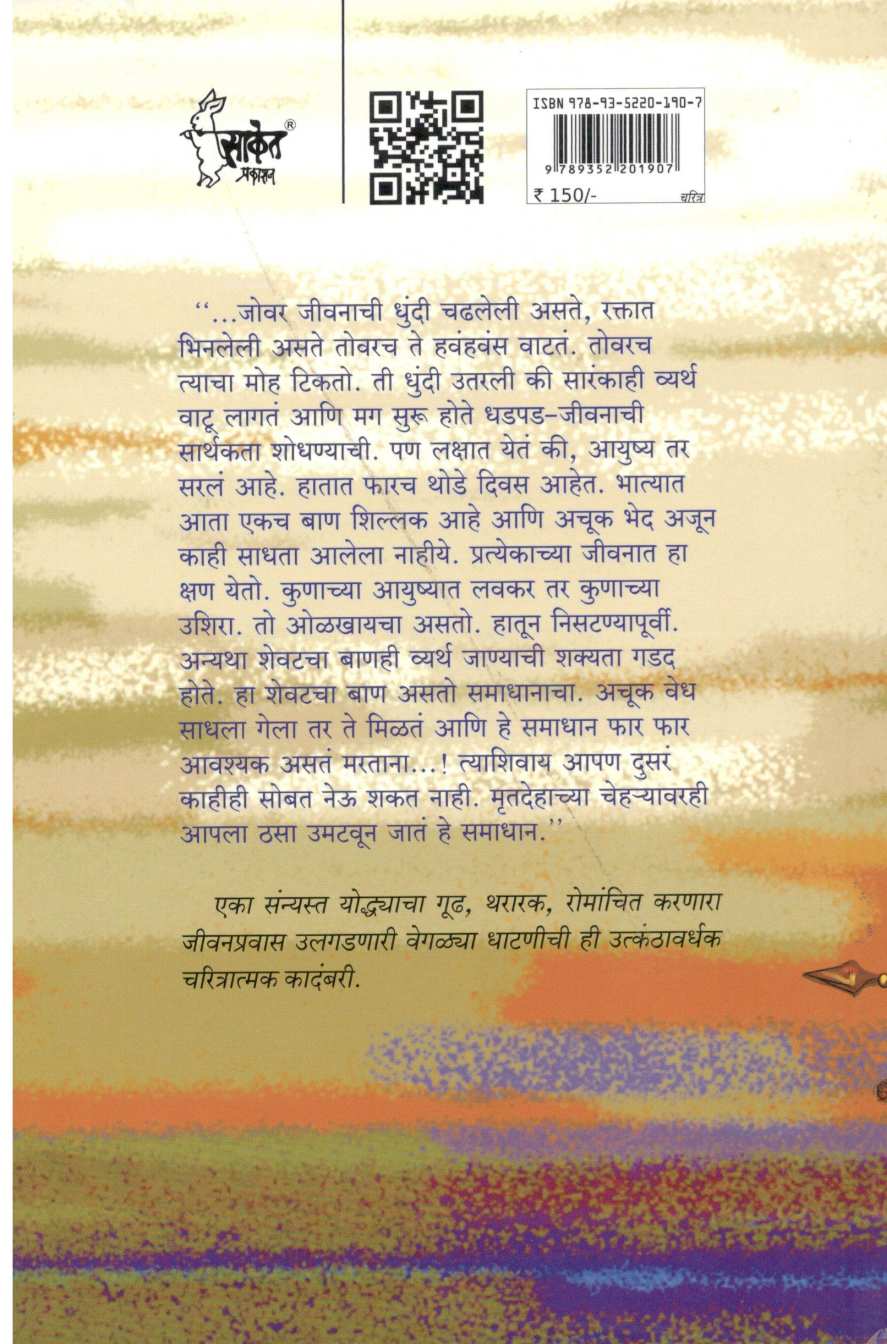 साकेत®
प्रकाशन
ISBN 978-93-5220-190-7
9 789352 201907
₹ 150/-
चरित्र
‘‘...जोवर जीवनाची धुंदी चढलेली असते, रक्तात
भिनलेली असते तोवरच ते हवंहवंस वाटतं. तोवरच
त्याचा मोह टिकतो. ती धुंदी उतरली की सारंकाही व्यर्थ
वाटू लागतं आणि मग सुरू होते धडपड-जीवनाची
सार्थकता शोधण्याची. पण लक्षात येतं की, आयुष्य तर
सरलं आहे. हातात फारच थोडे दिवस आहेत. भात्यात
आता एकच बाण शिल्लक आहे आणि अचूक भेद अजून
काही साधता आलेला नाहीये. प्रत्येकाच्या जीवनात हा
क्षण येतो. कुणाच्या आयुष्यात लवकर तर कुणाच्या
उशिरा. तो ओळखायचा असतो. हातून निसटण्यापूर्वी.
अन्यथा शेवटचा बाणही व्यर्थ जाण्याची शक्यता गडद
होते. हा शेवटचा बाण असतो समाधानाचा. अचूक वेध
साधला गेला तर ते मिळतं आणि हे समाधान फार फार
आवश्यक असतं मरताना...! त्याशिवाय आपण दुसरं
काहीही सोबत नेऊ शकत नाही. मृतदेहाच्या चेहऱ्यावरही
आपला ठसा उमटवून जातं हे समाधान.’’
एका संन्यस्त योद्ध्याचा गूढ, थरारक, रोमांचित करणारा
जीवनप्रवास उलगडणारी वेगळ्या धाटणीची ही उत्कंठावर्धक
चरित्रात्मक कादंबरी.